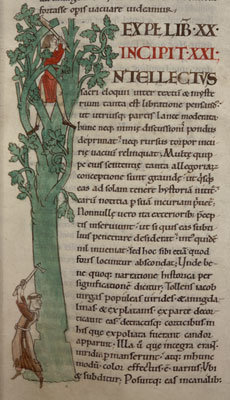 fortasse opis vacuare videamur.
EXPL LIB. XX.
INCIPIT. XXI.
NTELLECTUS
sacri eloquii inter textū & myste
rium tanta est libratione pensand'
ut utriusq; partis lance moderata
hunc neq; nimie discussionis pondus
deprimat. neq; rursus torpor incu
rie vacuū relinquat. Multe quip
pe eius sententie tanta allegoriarū
conceptione sunt gravide. ut q'sqs
eas ad solam tenere hystoriā nititur
earū noticia p suā incuriam privet'.
Nonnulle vero ita exterioribus pcep
tis inserviunt. ut si quis eas subtili
us penetrare desiderat. intus quidē
nil inveniat. sed hoc sibi etiā quod
foris locuntur abscondat. Unde be
ne quoq; narratione historica per
significationē dicitur. Tollens iacob
virgas populeas virides. & amigdali
nas & ex platanis. ex parte decorti
cavit eas. detractisq; corticibus in
his que expoliata fuerant candor
apparuit. Illa ū que integra erant
viridia pmanserunt. atq; in hunc
modū color effectus ē varius. Ubi
& subditur. Posuitq; eas in canalib;